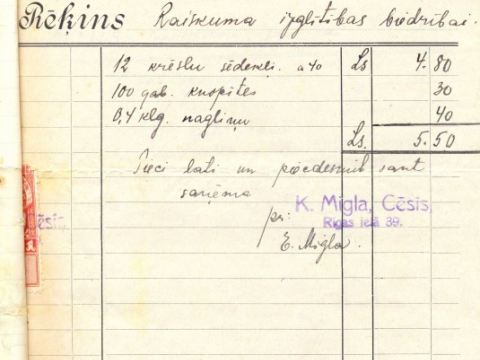 Rēķins Raiskuma izglītības biedrībai.
12 krēslu sēdekļi a 40 Ls 4.80
100 gab. knopītes 30
0,4 klg. nagliņu 40
Ls. 5.50
Pieci lati un piecdesmit sant
saņēma
K. Migla, Cēsis,
Rīgas ielā 39.
pr:
E. Migla.